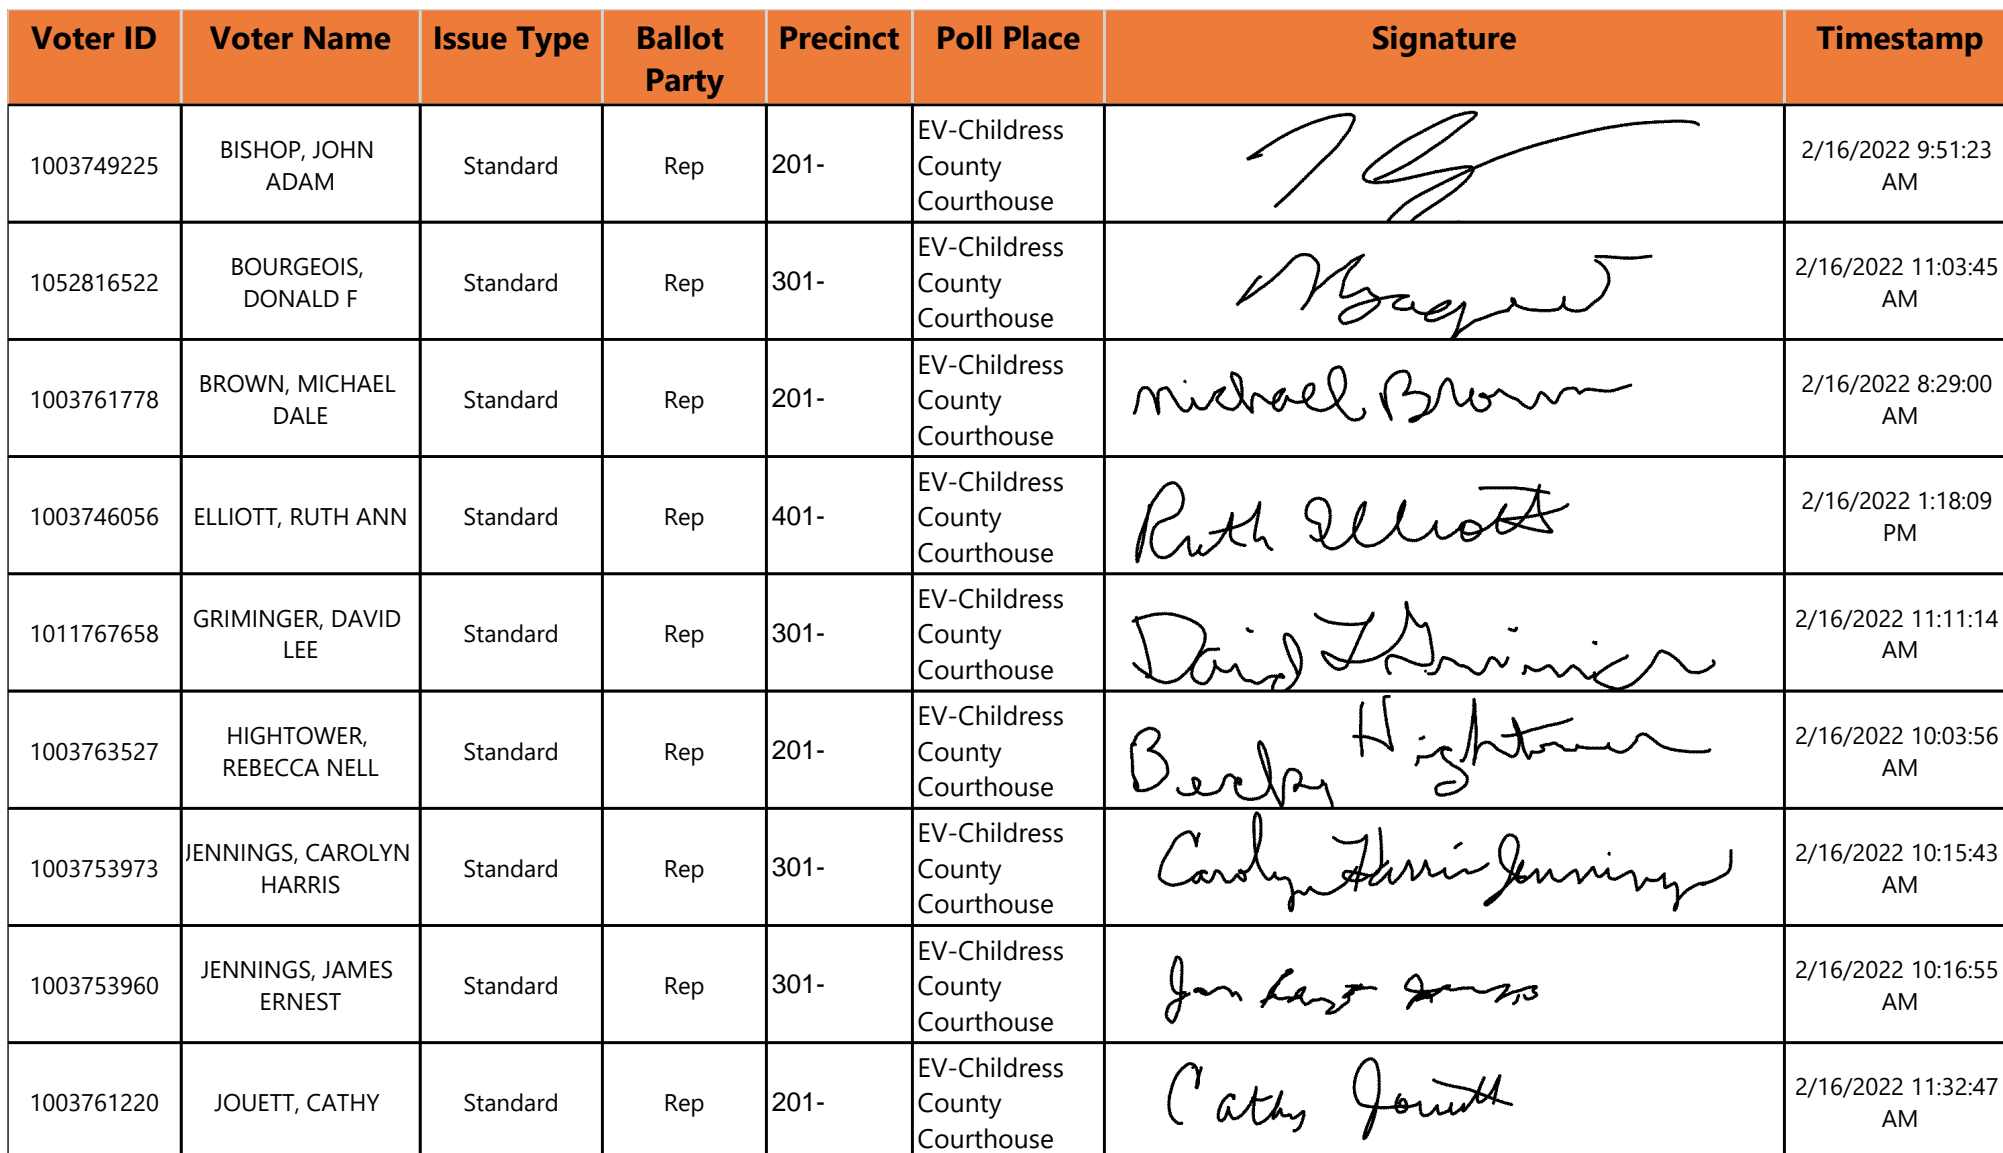 Voter ID Voter Name Issue Type Ballot Party Precinct Poll Place Signature Timestamp
1003749225 BISHOP, JOHN ADAM Standard Rep 201- EV-Childress County Courthouse 2/16/2022 9:51:23 AM
1052816522 BOURGEOIS, DONALD F Standard Rep 301- EV-Childress County Courthouse 2/16/2022 11:03:45 AM
1003761778 BROWN, MICHAEL DALE Standard Rep 201- EV-Childress County Courthouse Michael Brown 2/16/2022 8:29:00 AM
1003746056 ELLIOTT, RUTH ANN Standard Rep 401- EV-Childress County Courthouse Ruth Elliott 2/16/2022 1:18:09 PM
1011767658 GRIMINGER, DAVID LEE Standard Rep 301- EV-Childress County Courthouse David L 2/16/2022 11:11:14 AM
1003763527 HIGHTOWER, REBECCA NELL Standard Rep 201- EV-Childress County Courthouse Becky Hightower 2/16/2022 10:03:56 AM
1003753973 JENNINGS, CAROLYN HARRIS Standard Rep 301- EV-Childress County Courthouse Carolyn Harris Jennings 2/16/2022 10:15:43 AM
1003753960 JENNINGS, JAMES ERNEST Standard Rep 301- EV-Childress County Courthouse 2/16/2022 10:16:55 AM
1003761220 JOUETT, CATHY Standard Rep 201- EV-Childress County Courthouse Cathy Jouett 2/16/2022 11:32:47 AM